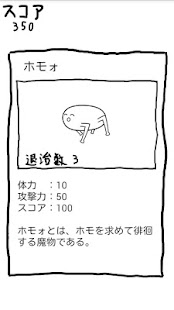 スコア
350
ホモォ
退治数 3
体力　：10
攻撃力：50
スコア：100
ホモォとは、ホモを求めて徘徊
する魔物である。